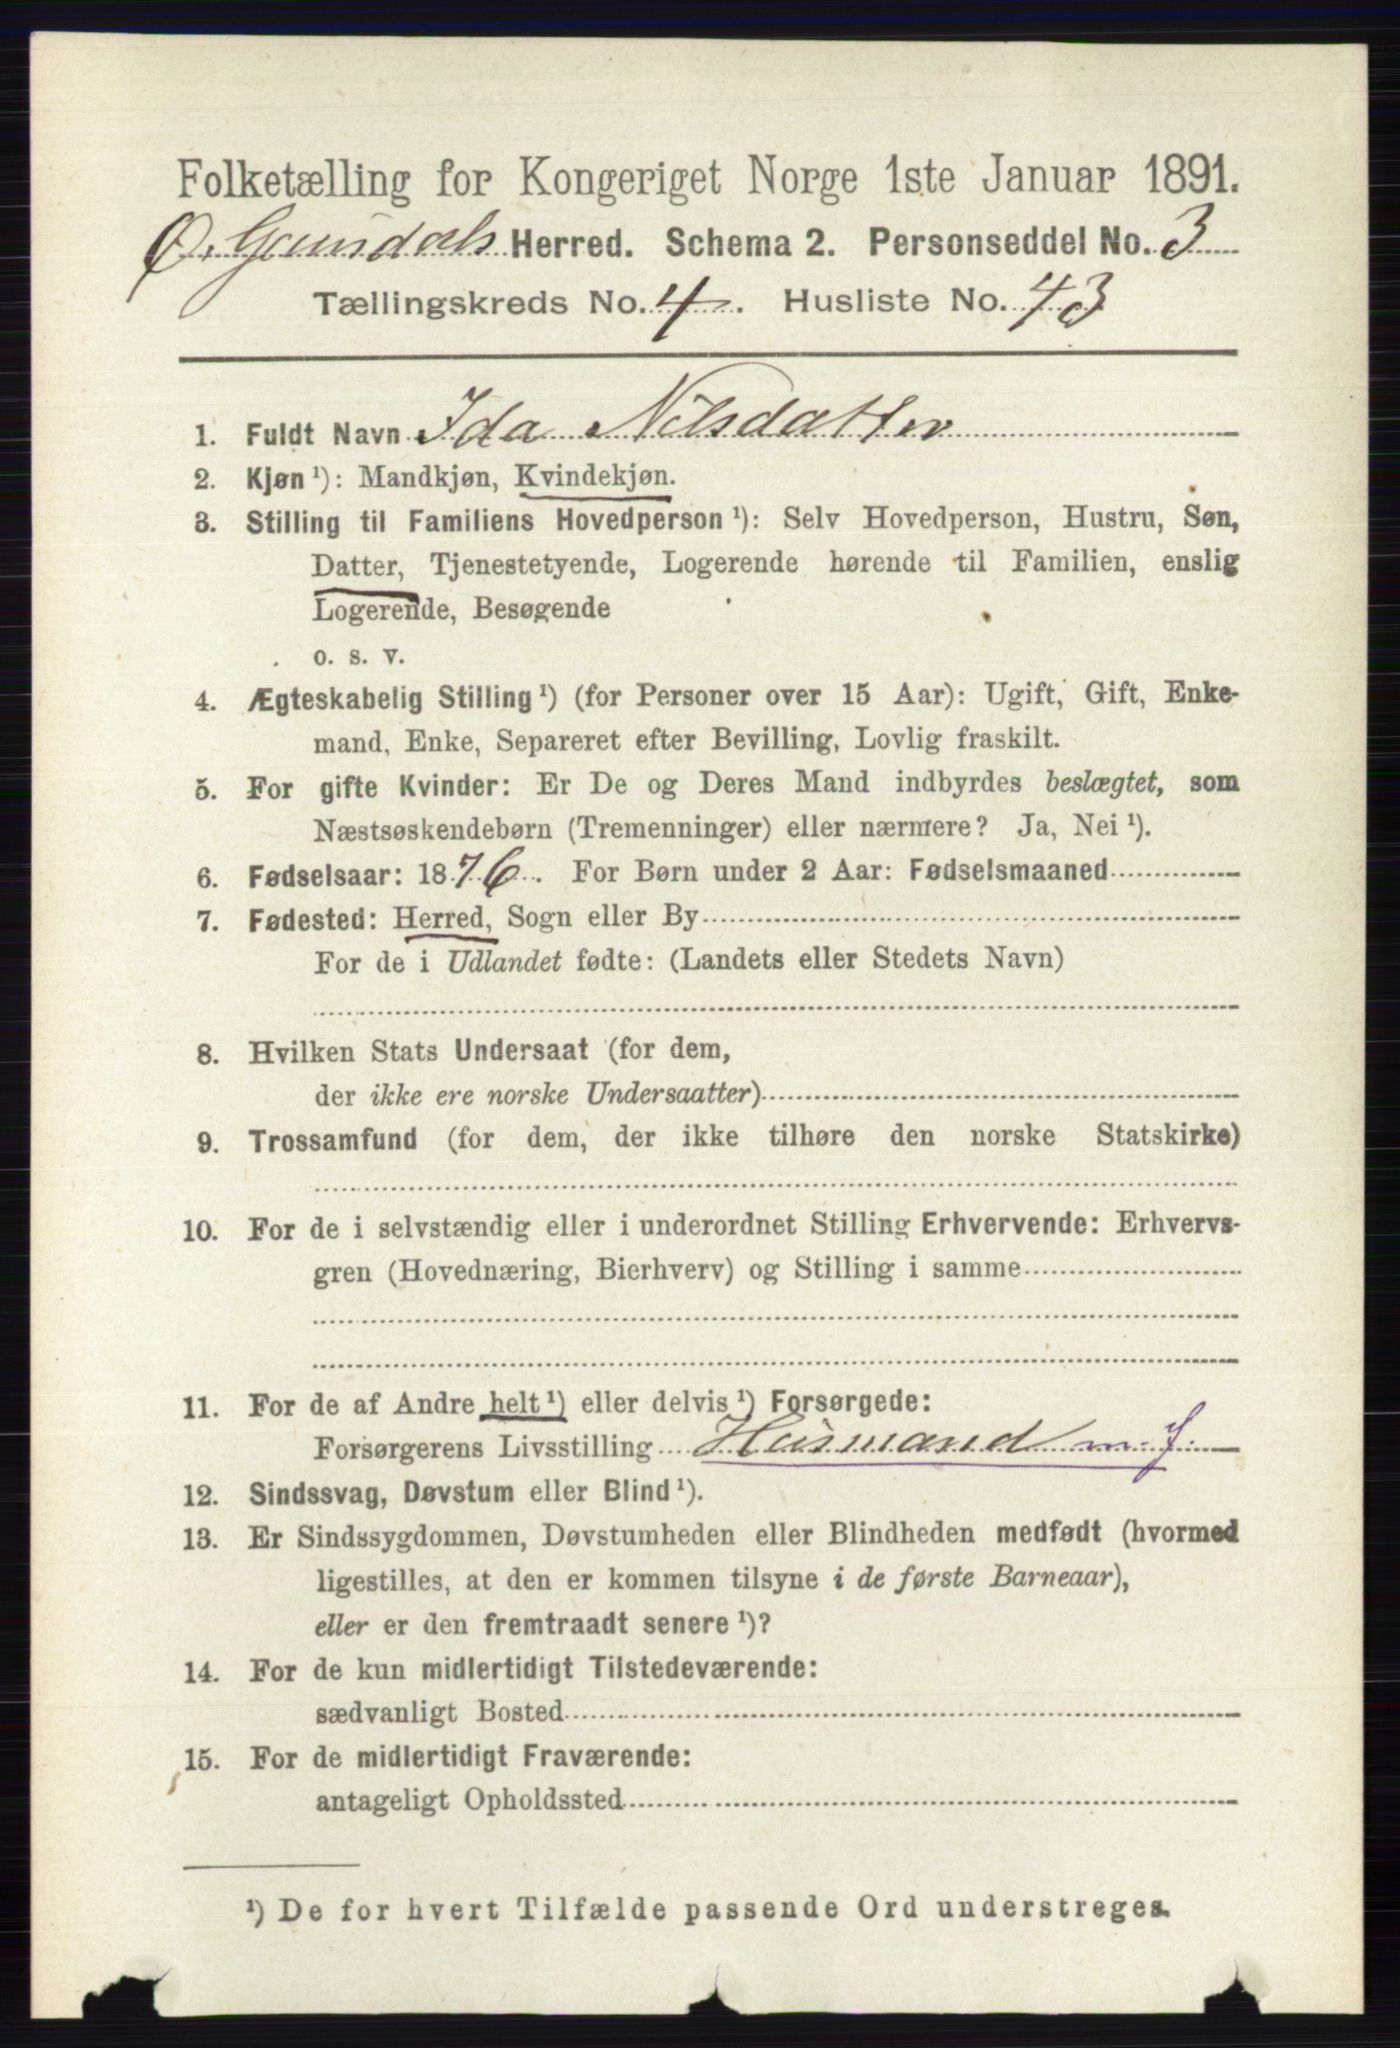 Folketælling for Kongeriget Norge 1ste Januar 1891.
Ø. Gausdals Herred. Schema 2. Personseddel No. 3
Tællingskreds No. 4. Husliste No. 43
1. Fuldt Navn Ida Nilsdatter
2. Kjøn ¹): Mandkjøn, Kvindekjøn.
3. Stilling til Familiens Hovedperson ¹): Selv Hovedperson, Hustru, Søn,
Datter, Tjenestetyende, Logerende hørende til Familien, enslig
Logerende, Besøgende
o. s. v.
4. Ægteskabelig Stilling ¹) (for Personer over 15 Aar): Ugift, Gift, Enke-
mand, Enke, Separeret efter Bevilling, Lovlig fraskilt.
5. For gifte Kvinder: Er De og Deres Mand indbyrdes beslægtet, som
Næstsøskendebørn (Tremenninger) eller nærmere? Ja, Nei ¹).
6. Fødselsaar: 1876. For Børn under 2 Aar: Fødselsmaaned
7. Fødested: Herred, Sogn eller By
For de i Udlandet fødte: (Landets eller Stedets Navn)
8. Hvilken Stats Undersaat (for dem,
der ikke ere norske Undersaatter)
9. Trossamfund (for dem, der ikke tilhøre den norske Statskirke)
10. For de i selvstændig eller i underordnet Stilling Erhvervende: Erhvervs-
gren (Hovednæring, Bierhverv) og Stilling i samme
11. For de af Andre helt ¹) eller delvis ¹) Forsørgede:
Forsørgerens Livsstilling Husmand m. J.
12. Sindssvag, Døvstum eller Blind ¹).
13. Er Sindssygdommen, Døvstumheden eller Blindheden medfødt (hvormed
ligestilles, at den er kommen tilsyne i de første Barneaar),
eller er den fremtraadt senere ¹)?
14. For de kun midlertidigt Tilstedeværende:
sædvanligt Bosted
15. For de midlertidigt Fraværende:
antageligt Opholdssted
¹) De for hvert Tilfælde passende Ord understreges.